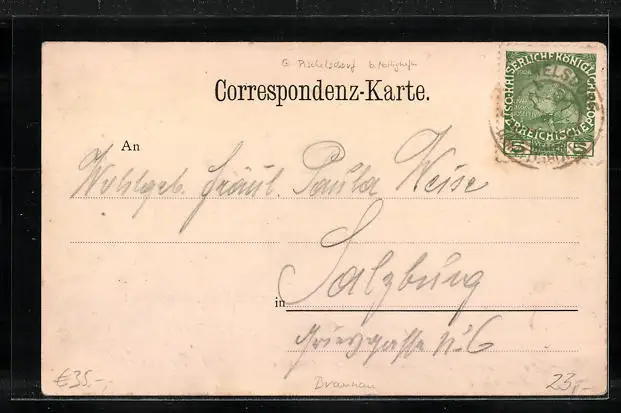 Pischelsdorf b. Mattighofen
Correspondenz-Karte.
WELS
KAISERLICHE KÖNIGLICHE
ÖSTERREICHISCHE POST
5 HELLER 5
An
Wohlgeb. Fräul. Paula Weise
Salzburg
in
Griesgasse No 6
€35.-
Braunau
23,-